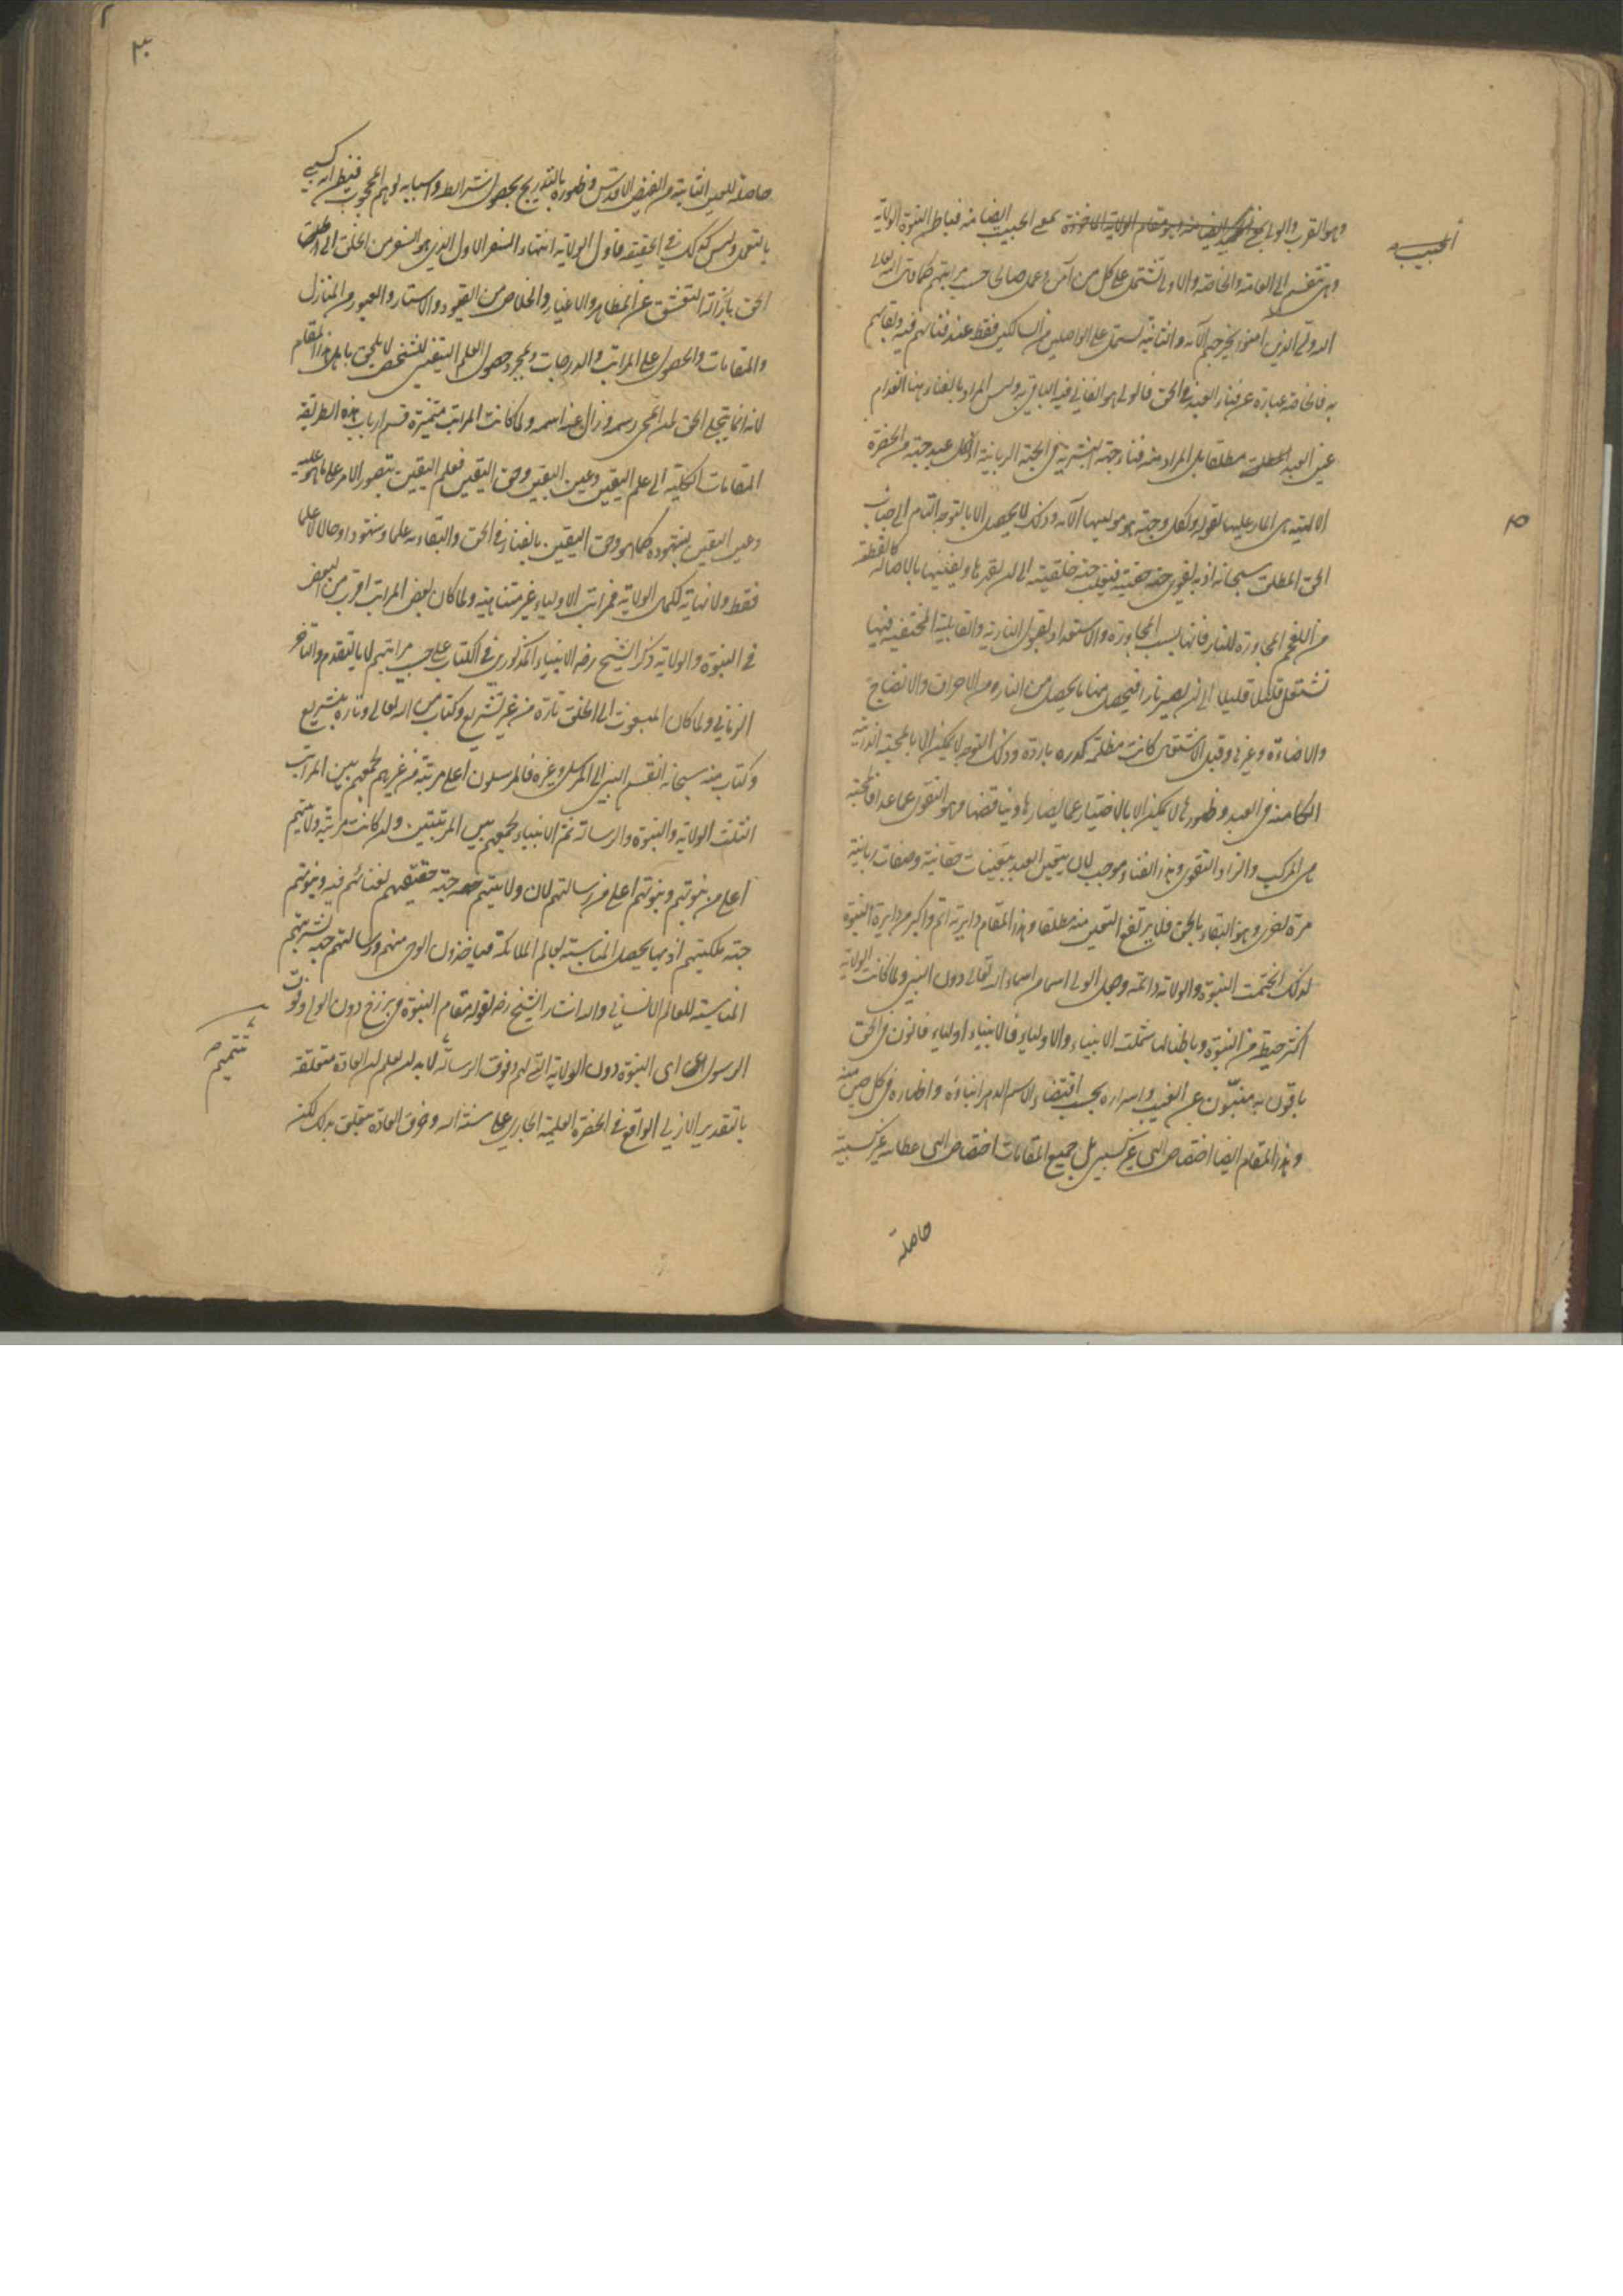 وهو القرب والولي بمعنى الحبيب ايضا منه فباطن النبوة الولاية
الحبيب
وهي تنقسم الى العامة والخاصة والاولى تشتمل على كل من آمن وعمل صالحا على حسب مراتبهم كما قال الله تعالى
الله ولي الذين آمنوا يخرجهم الآية والثانية تشتمل على الواصلين من السالكين فقط عند فنائهم فيه وبقائهم
به فالخاصة عبارة عن فناء العبد في الحق فالولي هو الفاني فيه الباقي به وليس المراد بالفناء هنا انعدام
عين العبد مطلقا بل المراد منه فناء جهته البشرية في الجهة الربانية اذ لكل عبد جهة من الحضرة
الالهية هي المشار عليها بقوله ولكل وجهة هو موليها الآية وذلك لا يحصل الا بالتوجه التام الى جناب
١٥
الحق المطلق سبحانه اذ به يقوى جهة حقيته فيغلب جهة خلقيته الى ان يقهرها ويفنيها بالاصالة كالقطعة
من الفحم المجاورة للنار فانها بسبب المجاورة والاستعداد لقبول النارية والقابلية المختفية فيها
تشتعل قليلا قليلا الى ان يصير نارا فيحصل منها ما يحصل من النار من الاحراق والانضاج
والاضاءة وغيرها وقبل الاشتعال كانت مظلمة كدرة باردة وذلك التوجه لا يمكن الا بالمحبة الذاتية
الكامنة في العبد وظهورها لا يمكن الا بالاجتناب عما يضادها ويناقضها وهو التقوى عما عداها فالمحبة
هي المركب والزاد التقوى وهذا الفناء موجب لان يتعين العبد بتعينات حقانية وصفات ربانية
مرة اخرى وهو البقاء بالحق فلا يرتفع التعين منه مطلقا وهذا المقام دايرته اتم واكبر من دايرة النبوة
لذلك انختمت النبوة والولاية دائمة وجعل الولي اسما من اسماء الله تعالى دون النبي ولما كانت الولاية
اكثر حيطة من النبوة وباطنا لها شملت الانبياء والاولياء فالانبياء اولياء فانون في الحق
باقون به منبئون عن الغيب واسراره بحسب اقتضاء الاسم الدهر انباءه واظهاره في كل حين منه
وهذا المقام ايضا اختصاص الهي غير كسبي بل جميع المقامات اختصاص الهي عطائية غير كسبية
حاصلة
٣
حاصلة للعين الثابتة من الفيض الاقدس وظهوره بالتدريج بحصول شرائطه واسبابه يوهم المحجوب فيظن انه كسبي
بالتعمل وليس كذلك في الحقيقة فاول الولاية انتهاء السفر الاول الذي هو السفر من الخلق الى الحق
الحق بازالة التعشق عن المظاهر والاغيار والخلاص من القيود والاستار والعبور من المنازل
والمقامات والحصول على المراتب والدرجات وبمجرد حصول العلم اليقيني للشخص لا يلحق باهل هذا المقام
لانه انما يتجلى الحق لمن انمحى رسمه وزال عنه اسمه ولما كانت المراتب متميزة قسم ارباب هذه الطريقة
المقامات الكلية الى علم اليقين وعين اليقين وحق اليقين فعلم اليقين بتصور الامر على ما هو عليه
وعين اليقين بشهوده كما هو وحق اليقين بالفناء في الحق والبقاء به علما وشهودا وحالا لا علما
فقط ولا نهاية لكمال الولاية فمراتب الاولياء غير متناهية ولما كان بعض المراتب اقرب من البعض
في النبوة والولاية ذكر الشيخ رضه الانبياء المذكورين في الكتاب على حسب مراتبهم لا بالتقدم والتأخر
الزماني ولما كان المبعوث الى الخلق تارة من غير تشريع وكتاب من الله تعالى وتارة بتشريع
وكتاب منه سبحانه انقسم النبي الى المرسل وغيره فالمرسلون اعلى مرتبة من غيرهم لجمعهم بين المراتب
الثلث الولاية والنبوة والرسالة ثم الانبياء لجمعهم بين المرتبتين وان كانت مرتبة ولايتهم
اعلى من نبوتهم ونبوتهم اعلى من رسالتهم لان ولايتهم جهة حقيتهم لفنائهم فيه ونبوتهم
جهة ملكيتهم اذ بها يحصل المناسبة لعالم الملائكة فياخذون الوحي منهم ورسالتهم جهة بشريتهم
المناسبة للعالم الانساني واليه اشار الشيخ رضه بقوله مقام النبوة في برزخ دون الولي وفوق
الرسول اي النبوة دون الولاية التي لهم وفوق الرسالة لا بد ان يعلم ان العادة متعلقة
تتميم
بالتقدير الازلي الواقع في الحضرة العلمية الجاري على سنة الله وخرق العادة يتعلق بذلك لكن